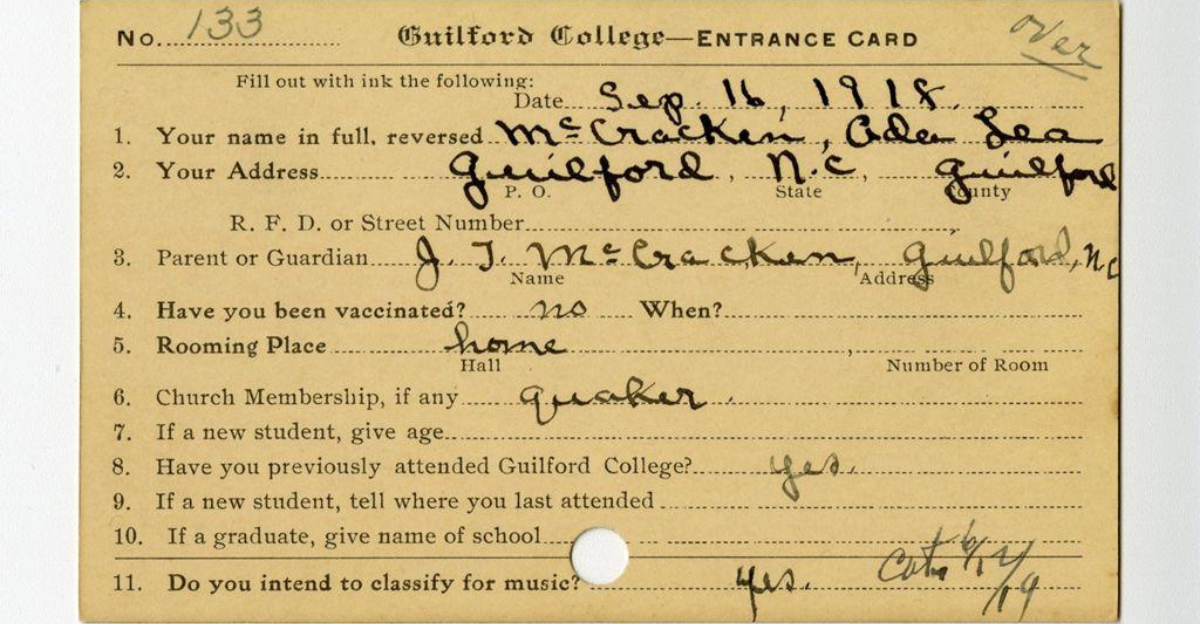 No. 133 Guilford College—ENTRANCE CARD over
Fill out with ink the following:
Date Sep. 16, 1918.
1. Your name in full, reversed McCracken, Ada Lea
2. Your Address Guilford, N.C, Guilford
P. O. State County
R. F. D. or Street Number
3. Parent or Guardian J. T. McCracken, Guilford, N.C
Name Address
4. Have you been vaccinated? no When?
5. Rooming Place home
Hall Number of Room
6. Church Membership, if any quaker.
7. If a new student, give age
8. Have you previously attended Guilford College? yes.
9. If a new student, tell where you last attended
10. If a graduate, give name of school
11. Do you intend to classify for music? yes.